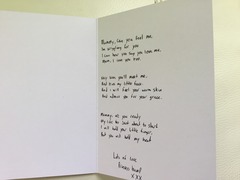 Mummy, Can you feel me,
I can hear you say you love me,
Mum, I love you too.
Very soon you'll meet me,
And kiss my little face.
And I will feel your warm skin
And your grace.
Mummy, are you ready
My life is about to start
I will hold your little finger,
But you will hold my heart
Lots of love
xxx